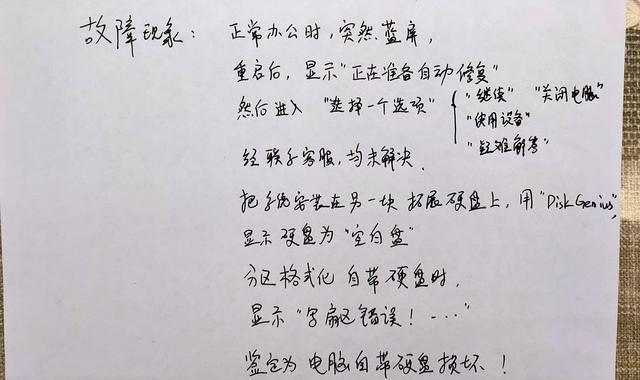 故障现象：正常办公时，突然蓝屏，
重启后，显示"正在准备自动修复"
然后进入"选择一个选项" { "继续" "关闭电脑"
"使用设备"
"疑难解答"
经联系客服，均未解决．
把系统安装在另一块拓展硬盘上，用"DiskGenius"
显示硬盘为"空白盘"
分区格式化自带硬盘时，
显示"写扇区错误！----"
鉴定为电脑自带硬盘损坏！